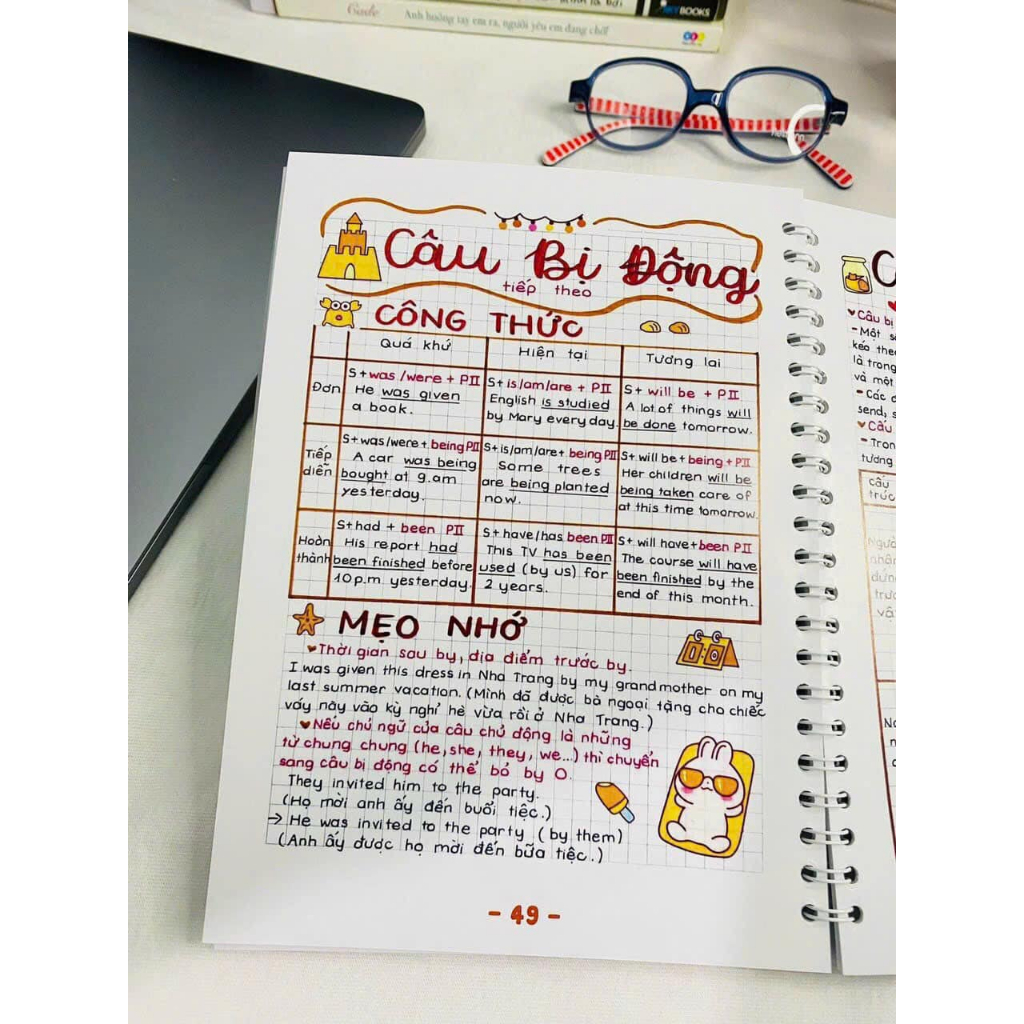 Gade
Anh hoàng tay em ra, người yêu em đang chờ!
BOOKS
Câu Bị Động
tiếp theo
CÔNG THỨC
Quá khứ
Hiện tại
Tương lai
Đơn
S+was/were + PII
He was given
a book.
S+is/am/are + PII
English is studied
by Mary every day.
S+ will be + PII
A lot of things will
be done tomorrow.
Tiếp
diễn
S+was/were+ being PII
A car was being
bought at 9.am
yesterday.
S+is/am/are+ being PII
Some trees
are being planted
now.
S+ will be+ being+ PII
Her children will be
being taken care of
at this time tomorrow.
Hoàn
thành
S+had + been PII
His report had
been finished before
10p.m. yesterday.
S+ have/has been PII
This TV has been
used (by us) for
2 years.
S+ will have+been PII
The course will have
been finished by the
end of this month.
MẸO NHỚ
Thời gian sau by, địa điểm trước by.
I was given this dress in Nha Trang by my grandmother on my
last summer vacation. (Mình đã được bà ngoại tặng cho chiếc
váy này vào kỳ nghỉ hè vừa rồi ở Nha Trang.)
Nếu chủ ngữ của câu chủ động là những
từ chung chung (he, she, they, we...) thì chuyển
sang câu bị động có thể bỏ by O.
They invited him to the party.
(Họ mời anh ấy đến buổi tiệc.)
→ He was invited to the party (by them)
(Anh ấy được họ mời đến bữa tiệc.)
- 49 -
C
Câu bị
- Một s
kéo the
là trong
và một
- Các đ
send, s
Cấu
- Tron
tương
cấu
trúc
Người
nhân
đứn
trướ
vậ